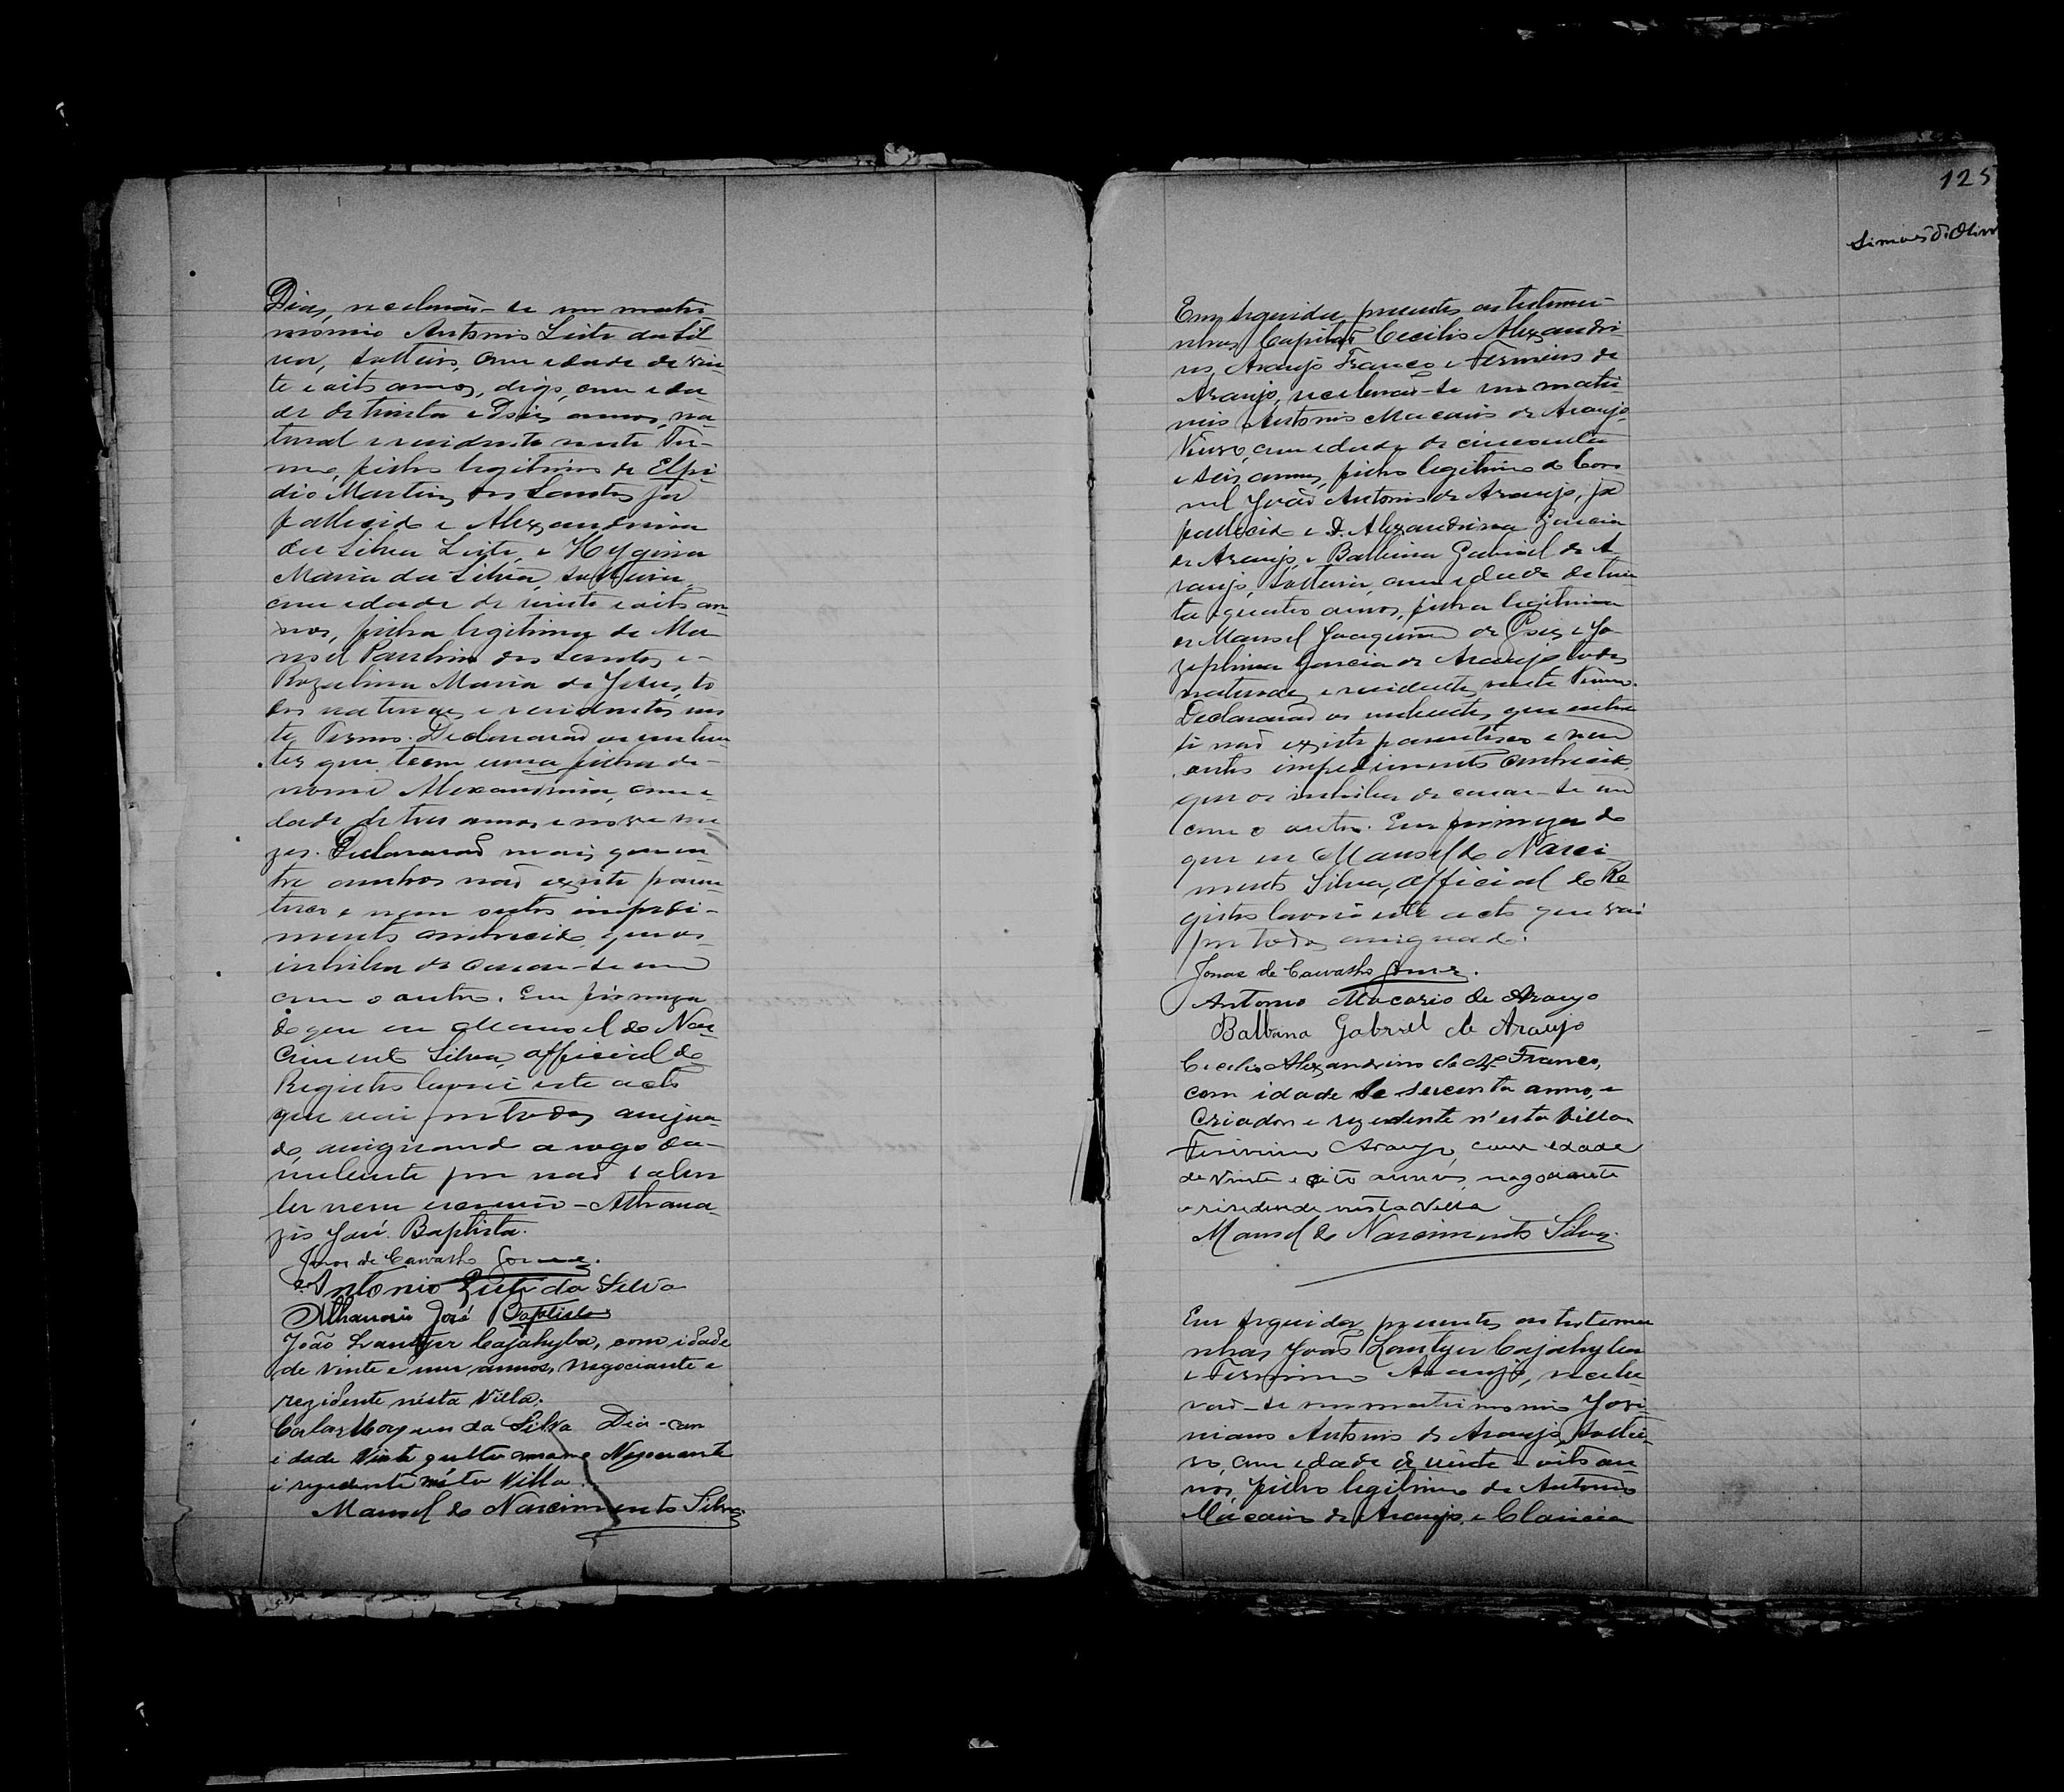 Dias, receberão-se em matri
monio Antonio Leite da Sil
va, solteiro, com edade de vin
te e oito annos, digo, com eda
de de trinta e dois annos, na
tural e residente neste Ter-
mo, filho legitimo de Elpi
dio Martins dos Santos já
fallecido e Alexandrina
da Silva Leite, e Hygina
Maria da Silva, solteira,
com edade de vinte e oito an
nos, filha legitima de Ma
noel Paulino dos Santos e
Rozalina Maria de Jesus, to
dos naturaes e residentes nes
te Termo. Declararão os nuben
tes que teem uma filha de
nome Alexandrina, com e
dade de tres annos e nove me
zes. Declararão mais que en
tre ambos não existe paren
tesco e nem outro impedi-
mento conhecido que os
inhiba de casar-se um
com o outro. Em firmeza
do que eu Manoel do Nas
cimento Silva, official do
Registro lavrei este acto
que vai por todos assigna-
do, assignando a rogo da
nubente por não saber
ler nem escrever - Athana
zio José Baptista.
Jonas de Carvalho Gomes.
Antonio Leite da Silva
Athanazio José Baptista
João Lantyer Cajahyba, com idade
de vinte e um annos, negociante e
rezidente nésta Villa.
Carlos da Silva Dias - com
idade Vinte annos Negociante
i rezidente nésta Villa.
Manoel do Nascimento Silva
125
Simões d'Oliv
Em seguida, presentes as testemu-
nhas Capitão Cecilio Alexandri
no Araujo Franco e Firmino de
Araujo, receberão-se em matri
monio Antonio Macario de Araujo
Viuvo, com edade de cincoenta
e seis annos, filho legitimo do Coro
nel João Antonio de Araujo, já
fallecido e D. Alexandrina Garcia
de Araujo, e Balbina Gabriel de A
raujo, solteira, com edade de trin
ta e quatro annos, filha legitima
de Manoel Joaquim de e Jo
zephina Garcia de Araujo, todos
naturaes e residentes neste Termo.
Declararão os nubentes que entre
si não existe parentesco e nem
outro impedimento conhecido
que os inhiba de casar-se um
com o outro. Em firmeza do
que eu Manoel do Nasci
mento Silva, official do Re
gistro lavrei este acto que vai
por todos assignado.
Jonas de Carvalho Gomes.
Antonio Macario de Araujo
Balbina Gabriel de Araujo
Cecilio Alexandrino de Arº Franco,
com idade de secenta annos, e
Criador e rezidente n'esta Villa
Firmino Araujo, com edade
de vinte e oito annos, negociante
e risidende nesta Villa
Manoel do Nascimento Silva
Em seguida, presentes as testemu
nhas João Lantyer Cajahyba
e Firmino Araujo, recebe-
rão-se em matrimonio Jovi-
niano Antonio de Araujo, soltei-
ro, com edade de vinte e oito an
nos, filho legitimo de Antonio
Macario de Araujo, e Claricia